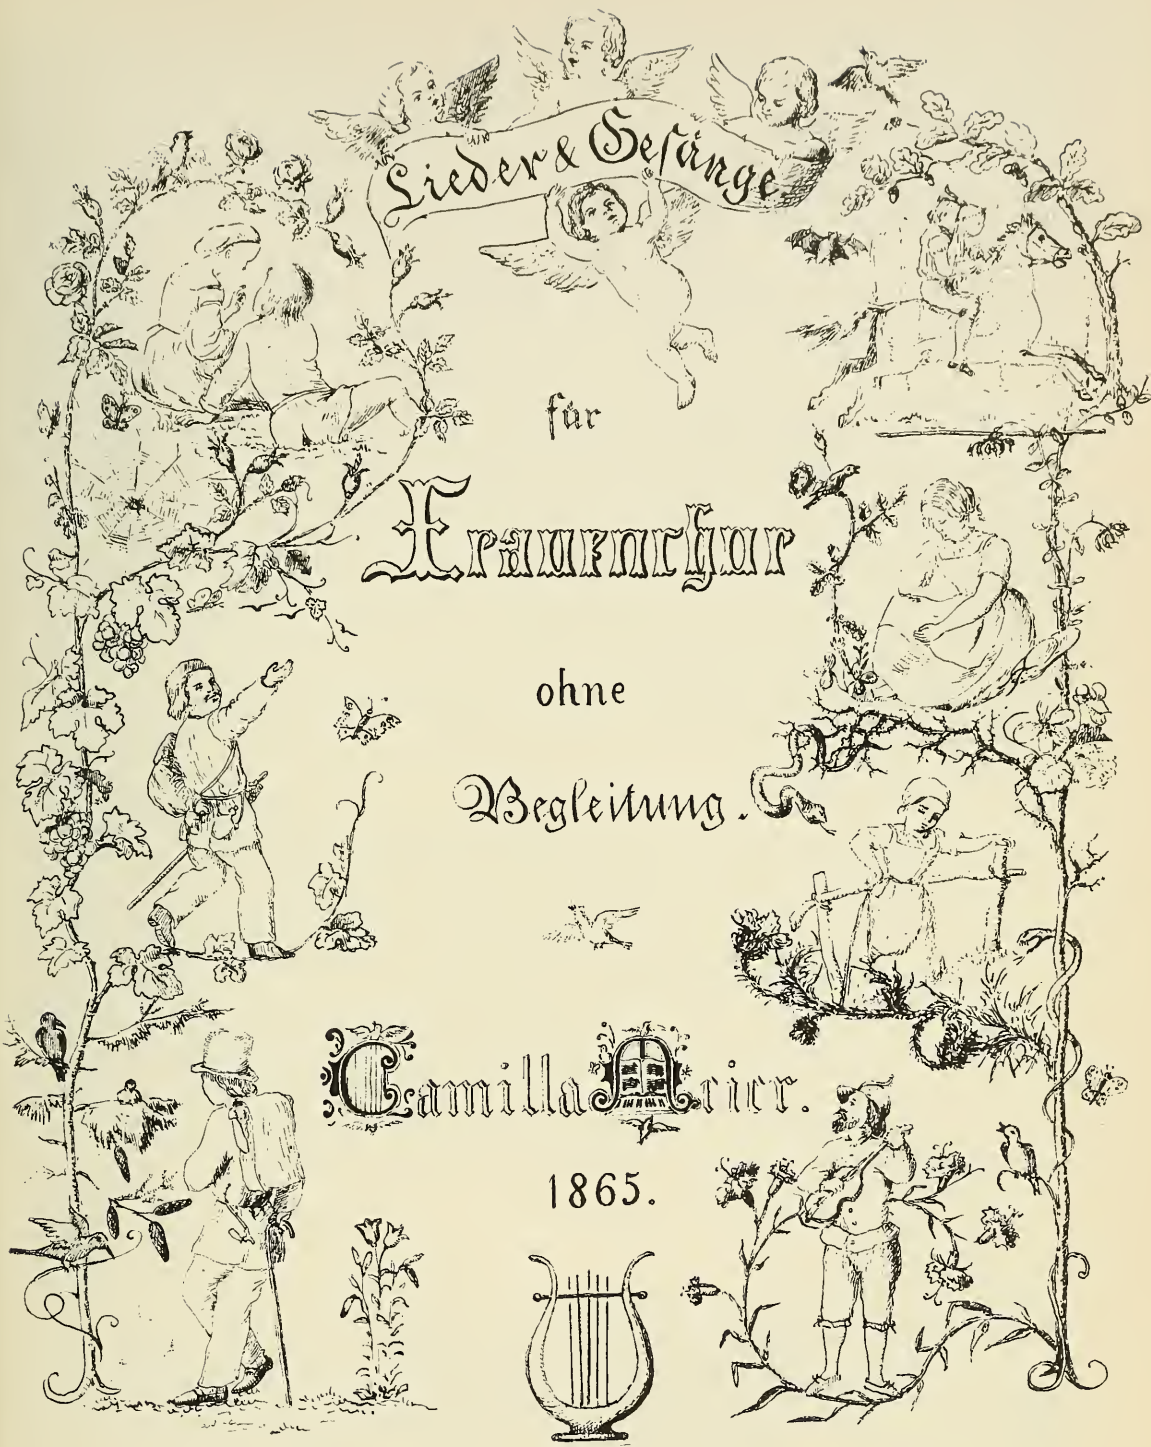 Lieder & Gesänge
für
Frauenchor
ohne
Begleitung.
Camilla Meier.
1865.